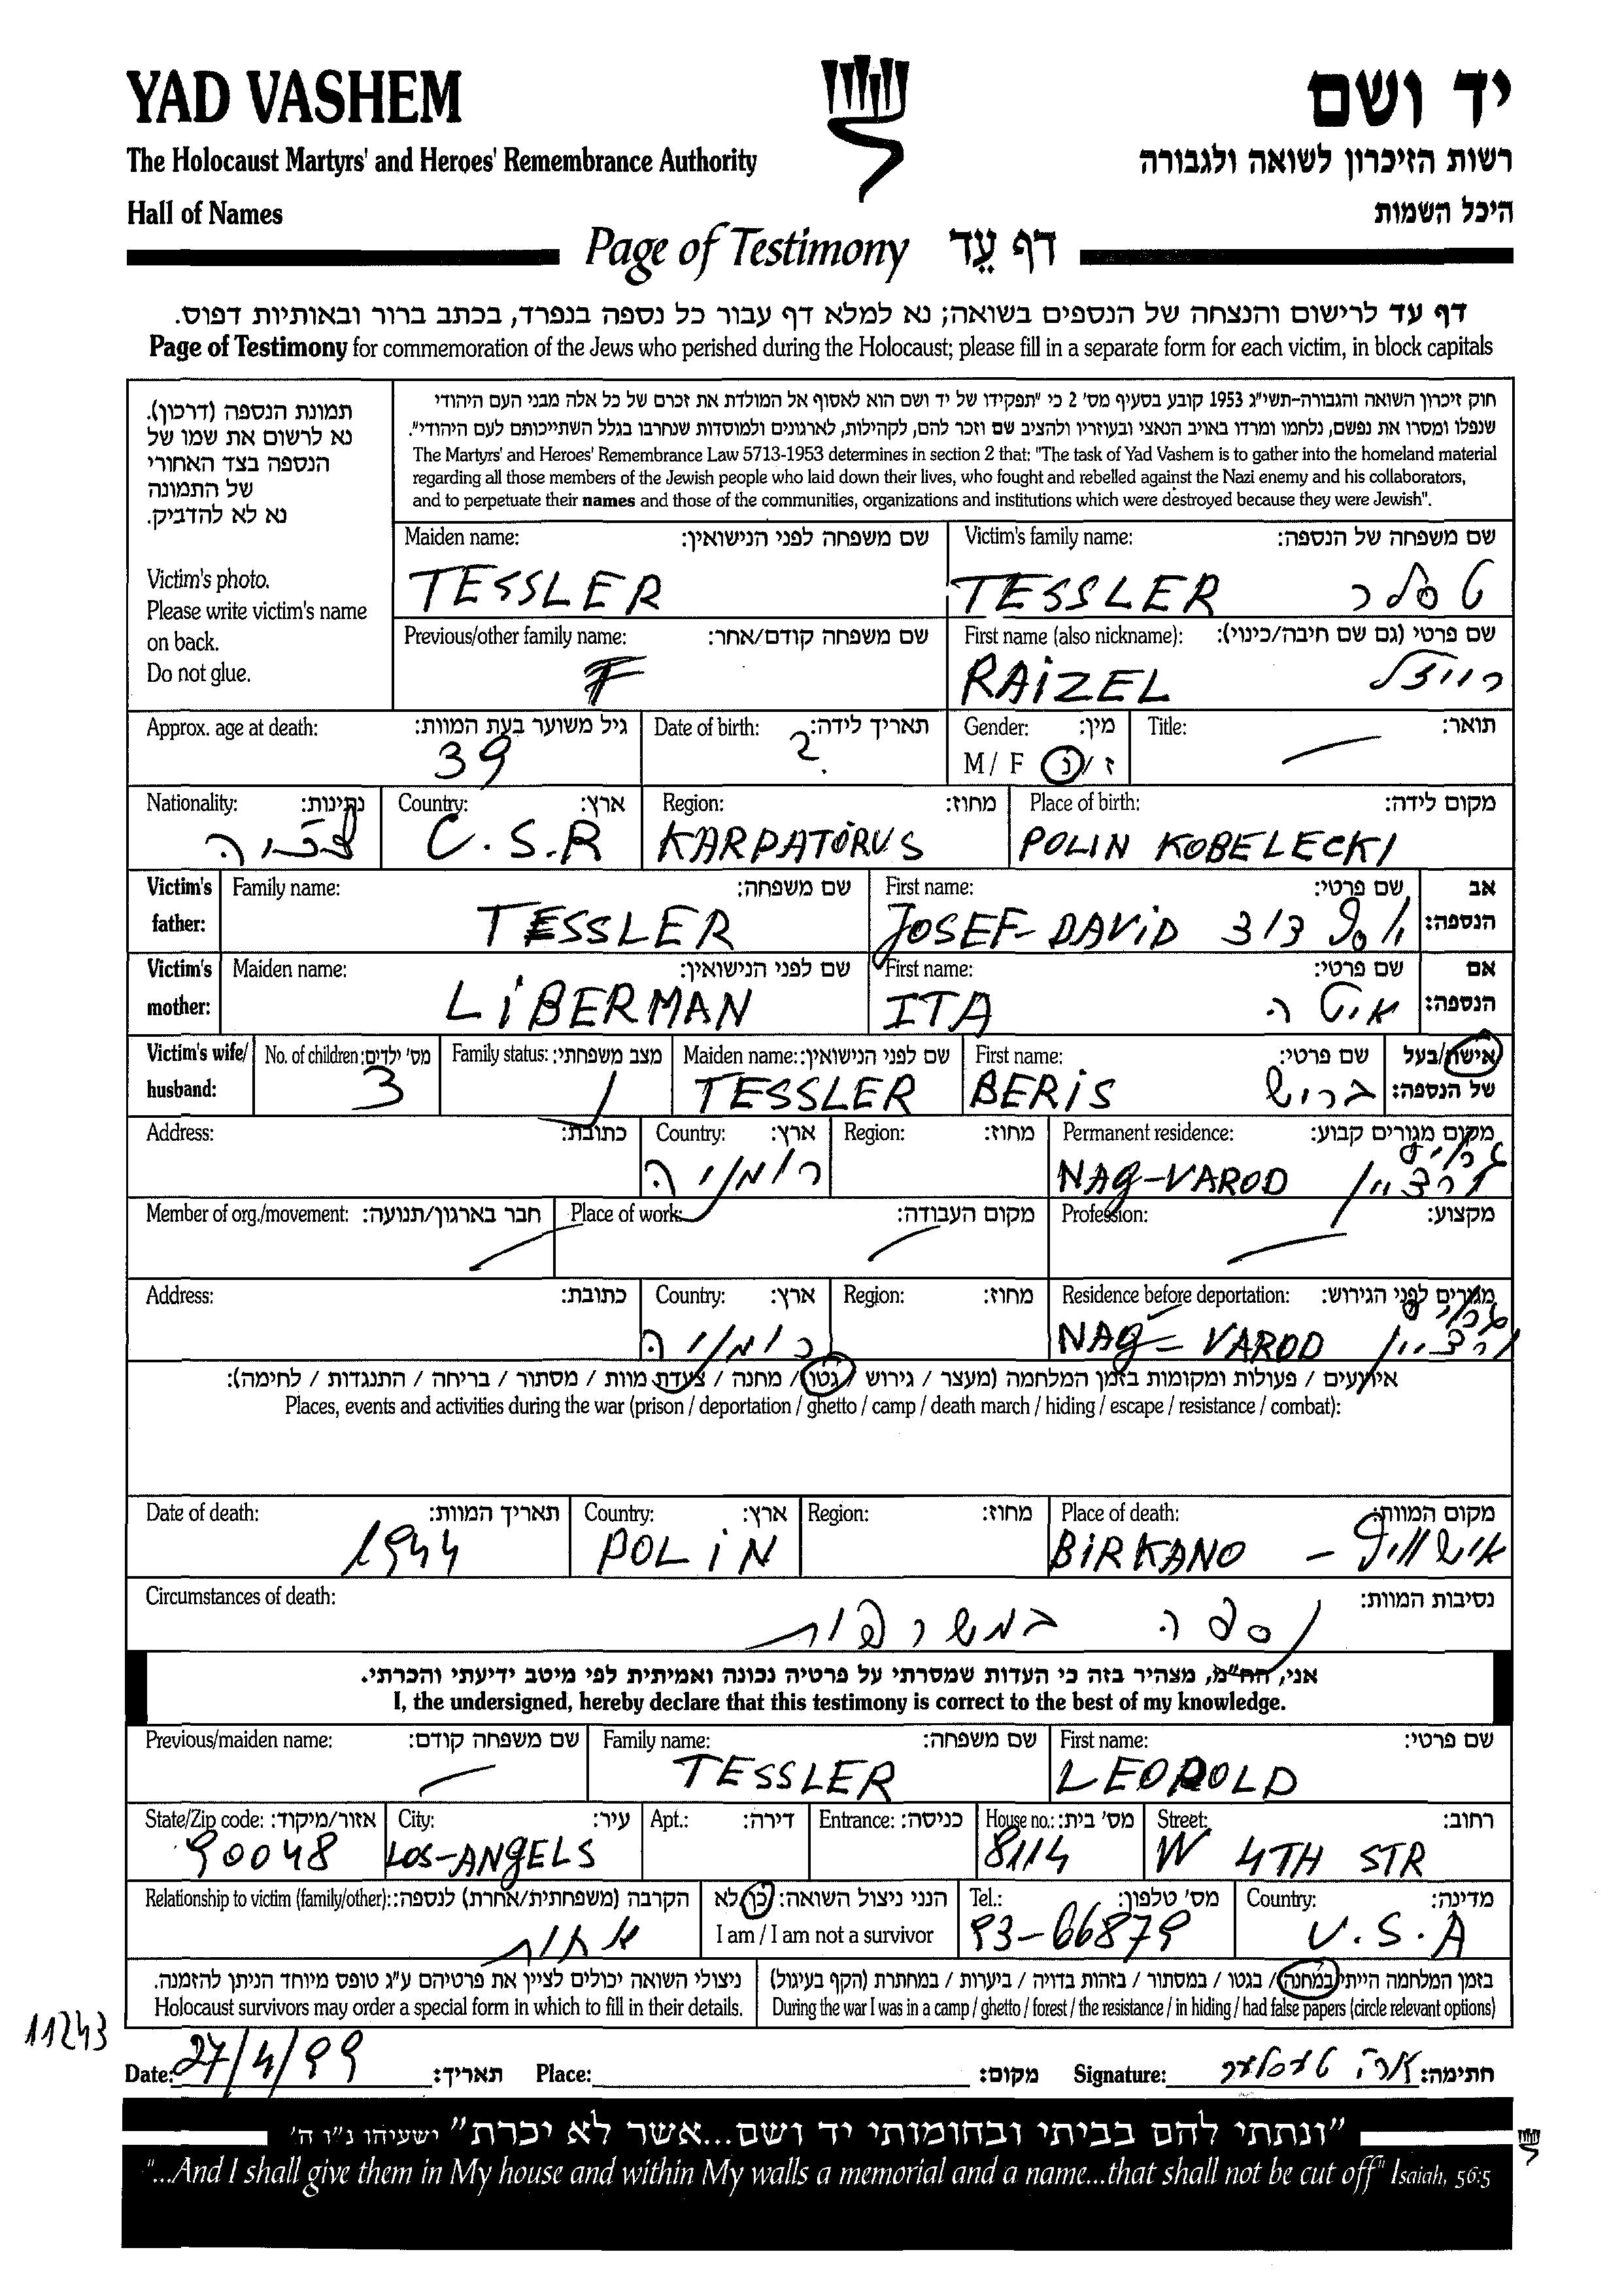 YAD VASHEM
יד ושם
The Holocaust Martyrs' and Heroes' Remembrance Authority
רשות הזיכרון לשואה ולגבורה
Hall of Names
היכל השמות
Page of Testimony דף עֵד
דף עד לרישום והנצחה של הנספים בשואה; נא למלא דף עבור כל נספה בנפרד, בכתב ברור ובאותיות דפוס.
Page of Testimony for commemoration of the Jews who perished during the Holocaust; please fill in a separate form for each victim, in block capitals
תמונת הנספה (דרכון).
נא לרשום את שמו של
הנספה בצד האחורי
של התמונה
נא לא להדביק.
Victim's photo.
Please write victim's name
on back.
Do not glue.
חוק זיכרון השואה והגבורה-תשי"ג 1953 קובע בסעיף מס' 2 כי "תפקידו של יד ושם הוא לאסוף אל המולדת את זכרם של כל אלה מבני העם היהודי
שנפלו ומסרו את נפשם, נלחמו ומרדו באויב הנאצי ובעוזריו ולהציב שם וזכר להם, לקהילות, לארגונים ולמוסדות שנחרבו בגלל השתייכותם לעם היהודי".
The Martyrs' and Heroes' Remembrance Law 5713-1953 determines in section 2 that: "The task of Yad Vashem is to gather into the homeland material
regarding all those members of the Jewish people who laid down their lives, who fought and rebelled against the Nazi enemy and his collaborators,
and to perpetuate their names and those of the communities, organizations and institutions which were destroyed because they were Jewish".
Maiden name: שם משפחה לפני הנישואין:
TESSLER
Victim's family name: שם משפחה של הנספה:
TESSLER טסלר
Previous/other family name: שם משפחה קודם/אחר:
First name (also nickname): שם פרטי (גם שם חיבה/כינוי):
RAIZEL רייזל
Approx. age at death: גיל משוער בעת המוות:
39
Date of birth: תאריך לידה:
?
Gender: מין:
M / F ז / נ
Title: תואר:
Nationality: נתינות:
Country: ארץ:
C.S.R
Region: מחוז:
KARPATORUS
Place of birth: מקום לידה:
POLIN KOBELECKI
Victim's father: Family name: שם משפחה:
TESSLER
First name: שם פרטי: אב הנספה:
JOSEF-DAVID יוסף דוד
Victim's mother: Maiden name: שם לפני הנישואין:
LIBERMAN
First name: שם פרטי: אם הנספה:
ITA איטה
Victim's wife/ husband: No. of children: מס' ילדים:
3
Family status: מצב משפחתי:
Maiden name: שם לפני הנישואין:
TESSLER
First name: שם פרטי: אישה/בעל של הנספה:
BERIS בריש
Address: כתובת:
Country: ארץ:
רומניה
Region: מחוז:
Permanent residence: מקום מגורים קבוע:
NAG-VAROD
Member of org./movement: חבר בארגון/תנועה:
Place of work: מקום העבודה:
Profession: מקצוע:
Address: כתובת:
Country: ארץ:
רומניה
Region: מחוז:
Residence before deportation: מגורים לפני הגירוש:
NAG-VAROD
אירועים / פעולות ומקומות בזמן המלחמה (מעצר / גירוש / גטו / מחנה / צעדת מוות / מסתור / בריחה / התנגדות / לחימה):
Places, events and activities during the war (prison / deportation / ghetto / camp / death march / hiding / escape / resistance / combat):
Date of death: תאריך המוות:
1944
Country: ארץ:
POLIN
Region: מחוז:
Place of death: מקום המוות:
BIRKANO - אושוויץ
Circumstances of death: נסיבות המוות:
נספה במשרפות
אני, הח"מ, מצהיר בזה כי העדות שמסרתי על פרטיה נכונה ואמיתית לפי מיטב ידיעתי והכרתי.
I, the undersigned, hereby declare that this testimony is correct to the best of my knowledge.
Previous/maiden name: שם משפחה קודם:
Family name: שם משפחה:
TESSLER
First name: שם פרטי:
LEOPOLD
State/Zip code: אזור/מיקוד:
90048
City: עיר:
LOS-ANGELS
Apt.: דירה:
Entrance: כניסה:
House no.: מס' בית:
8114
Street: רחוב:
W 4TH STR
Relationship to victim (family/other): הקרבה (משפחתית/אחרת) לנספה:
אחות
הנני ניצול השואה: כן לא
I am / I am not a survivor
Tel.: מס' טלפון:
93-66879
Country: מדינה:
U.S.A
ניצולי השואה יכולים לציין את פרטיהם ע"ג טופס מיוחד הניתן להזמנה.
Holocaust survivors may order a special form in which to fill in their details.
בזמן המלחמה הייתי במחנה / בגטו / במסתור / בזהות בדויה / ביערות / במחתרת (הקף בעיגול)
During the war I was in a camp / ghetto / forest / the resistance / in hiding / had false papers (circle relevant options)
11243
Date: 27/4/99 תאריך: Place: מקום: Signature: חתימה:
"ונתתי להם בביתי ובחומותי יד ושם...אשר לא יכרת" ישעיהו נ"ו ה'
"...And I shall give them in My house and within My walls a memorial and a name...that shall not be cut off" Isaiah, 56:5